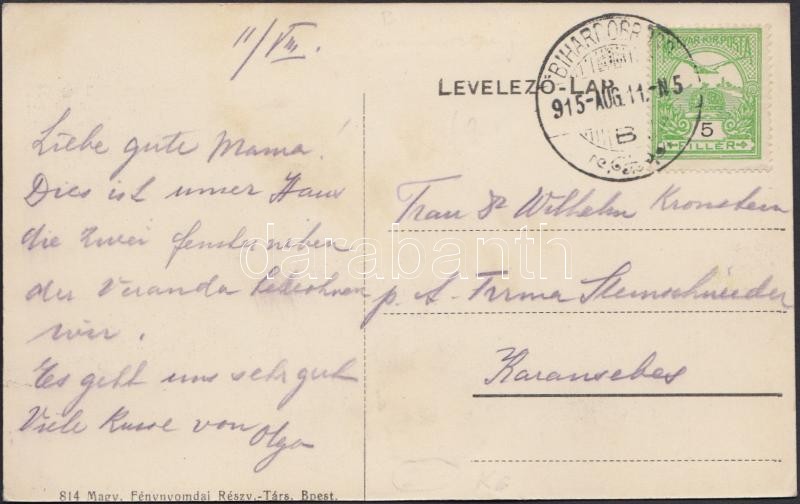 11/VIII.
Liebe gute Mama!
Dies ist unser Haus
die zwei fenster neben
der Veranda bewohnen
wir.
Es geht uns sehr gut
Viele Küsse von Olga
814 Magy. Fénynyomdai Részv.-Társ. Bpest.
LEVELEZŐ-LAP
BIHARDOBR
915-AUG.11.-N5
B
MAGYAR KIR. POSTA
5
FILLÉR
Frau Dr Wilhelm Kronstein
p. A. Firma Steinschneider
Karansebes
darabanth